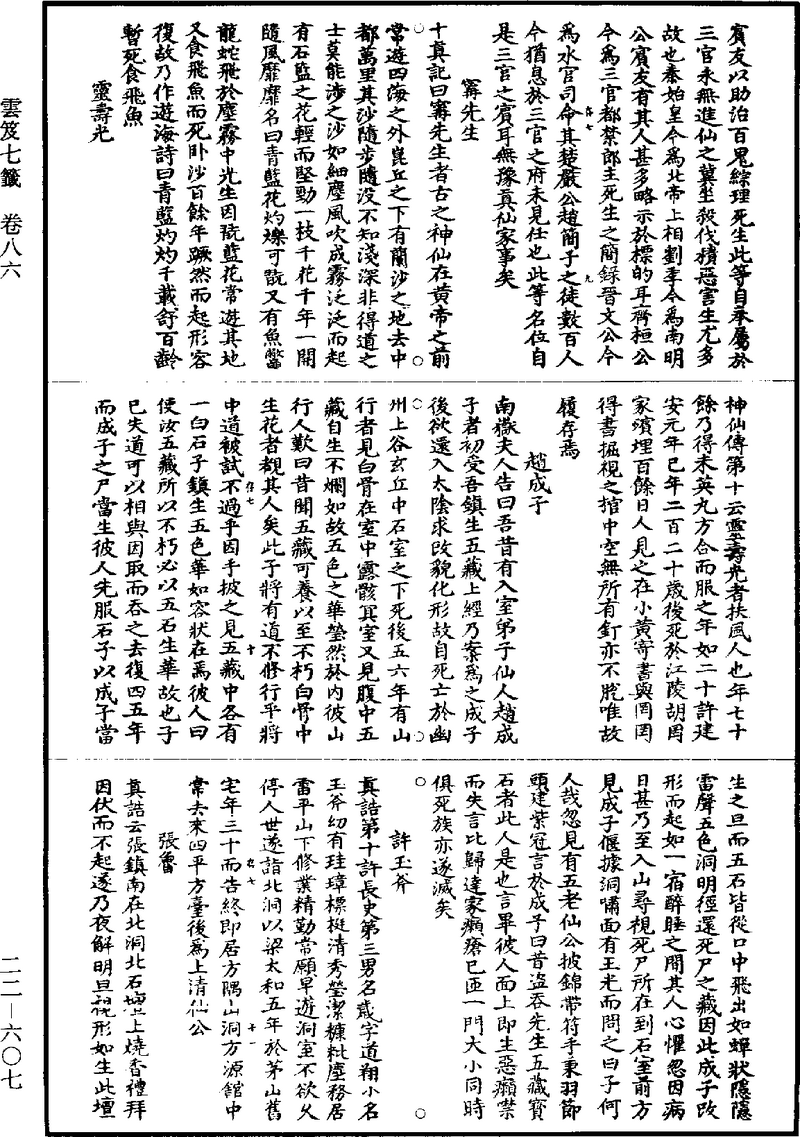 賓友以助治百鬼綜理死生此等自奉屬於
三官永無進仙之冀坐殺伐積惡害生尤多
故也秦始皇今為北帝上相劉季今為南明
公賓友有其人甚多略示於標的耳齊桓公
今為三官都禁郎主死生之簡錄晉文公今
為水官司命其楚嚴公趙簡子之徒數百人
今猶息於三官之府未見任也此等名位自
是三官之賓耳無豫真仙家事矣
甯先生
十真記曰甯先生者古之神仙在黃帝之前
常遊四海之外崑丘之下有蘭沙之地去中
都萬里其沙隨步隨沒不知淺深非得道之
士莫能涉之沙如細塵風吹成霧泛泛而起
有石藍之花輕而堅勁一枝千花千年一開
隨風靡靡名曰青藍花灼爍可翫又有魚鱉
龍蛇飛於塵霧中先生因翫藍花常遊其地
又食飛魚而死卧沙百餘年蹶然而起形容
復故乃作遊海詩曰青藍灼灼千載舒百齡
暫死食飛魚
靈壽光
神仙傳第十云靈壽光者扶風人也年七十
餘乃得朱英九方合而服之年如二十許建
安元年已年二百二十歲後死於江陵胡岡
家殯埋百餘日人見之在小黃寄書與岡岡
得書掘視之棺中空無所有釘亦不脫唯故
履存焉
趙成子
南嶽夫人告曰吾昔有入室弟子仙人趙成
子者初受吾鎮生五藏上經乃案為之成子
後欲還入太陰求改貌化形故自死亡於幽
州上谷玄丘中石室之下死後五六年有山
行者見白骨在室中露骸冥室又見腹中五
藏自生不爛如故五色之華瑩然於內彼山
行人歎曰昔聞五藏可養以至不朽白骨中
生花者覩其人矣此子將有道不修行乎將
中道被試不過乎因手披之見五藏中各有
一白石子鎮生五色華如容狀在焉彼人曰
使汝五藏所以不朽必以五石生華故也子
已失道可以相與因取而吞之去復四五年
而成子之尸當生彼人先服石子以成子當
生之旦而五石皆從口中飛出如蟬狀隱隱
雷聲五色洞明徑還死尸之藏因此成子改
形而起如一宿醉睡之間其人心懼忽因病
日甚乃至入山尋視死尸所在到石室前方
見成子偃據洞嘯面有玉光而問之曰子何
人哉忽見有五老仙公披錦帶符手秉羽節
頭建紫冠言於成子曰昔盜吞先生五藏寶
石者此人是也言畢彼人面上即生惡癩噤
而失言比歸達家癩瘡已匝一門大小同時
俱死族亦遂滅矣
許玉斧
真誥第十許長史第三男名翽字道翔小名
玉斧幼有珪璋標挺清秀瑩潔糠粃塵務居
雷平山下修業精勤常願早遊洞室不欲久
停人世遂詣北洞以梁太和五年於茅山舊
宅年三十而告終即居方隅山洞方源館中
常去來四平方臺後為上清仙公
張魯
真誥云張鎮南在北洞北石壇上燒香禮拜
因伏而不起遂乃夜解明旦視形如生此壇
雲笈七籤　卷八六
二二—六〇七